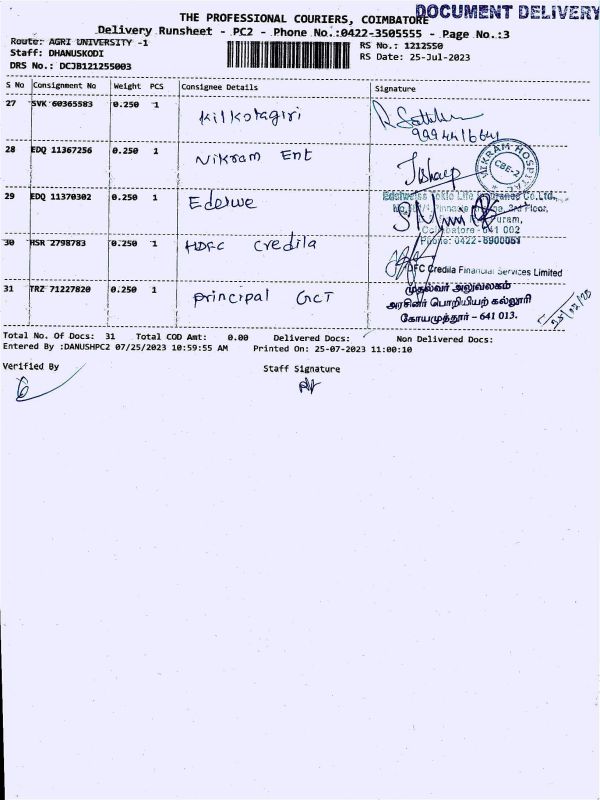 DOCUMENT DELIVERY
THE PROFESSIONAL COURIERS, COIMBATORE
Delivery Runsheet - PC2 - Phone No.:0422-3505555 - Page No.:3
Route: AGRI UNIVERSITY -1
RS No.: 1212550
Staff: DHANUSKODI
RS Date: 25-Jul-2023
DRS No.: DCJB121255003
S No Consignment No Weight PCS Consignee Details Signature
27 SVK 60365583 0.250 1 Kilkotagiri
28 EDQ 11367256 0.250 1 Vikram Ent
VIKRAM HOSPITAL
CBE-2
29 EDQ 11370302 0.250 1 Edelwe
Edelweiss Tokio Life Insurance Co.Ltd.,
3rd Floor,
Coimbatore - 641 002
Phone: 0422-6900051
30 HSR 2798783 0.250 1 HDFC Credila
HDFC Credila Financial Services Limited
31 TRZ 71227820 0.250 1 principal GCT
முதல்வர் அலுவலகம்
அரசினர் பொறியியற் கல்லூரி
கோயமுத்தூர் - 641 013.
Total No. Of Docs: 31 Total COD Amt: 0.00 Delivered Docs: Non Delivered Docs:
Entered By :DANUSHPC2 07/25/2023 10:59:55 AM Printed On: 25-07-2023 11:00:10
Verified By
Staff Signature